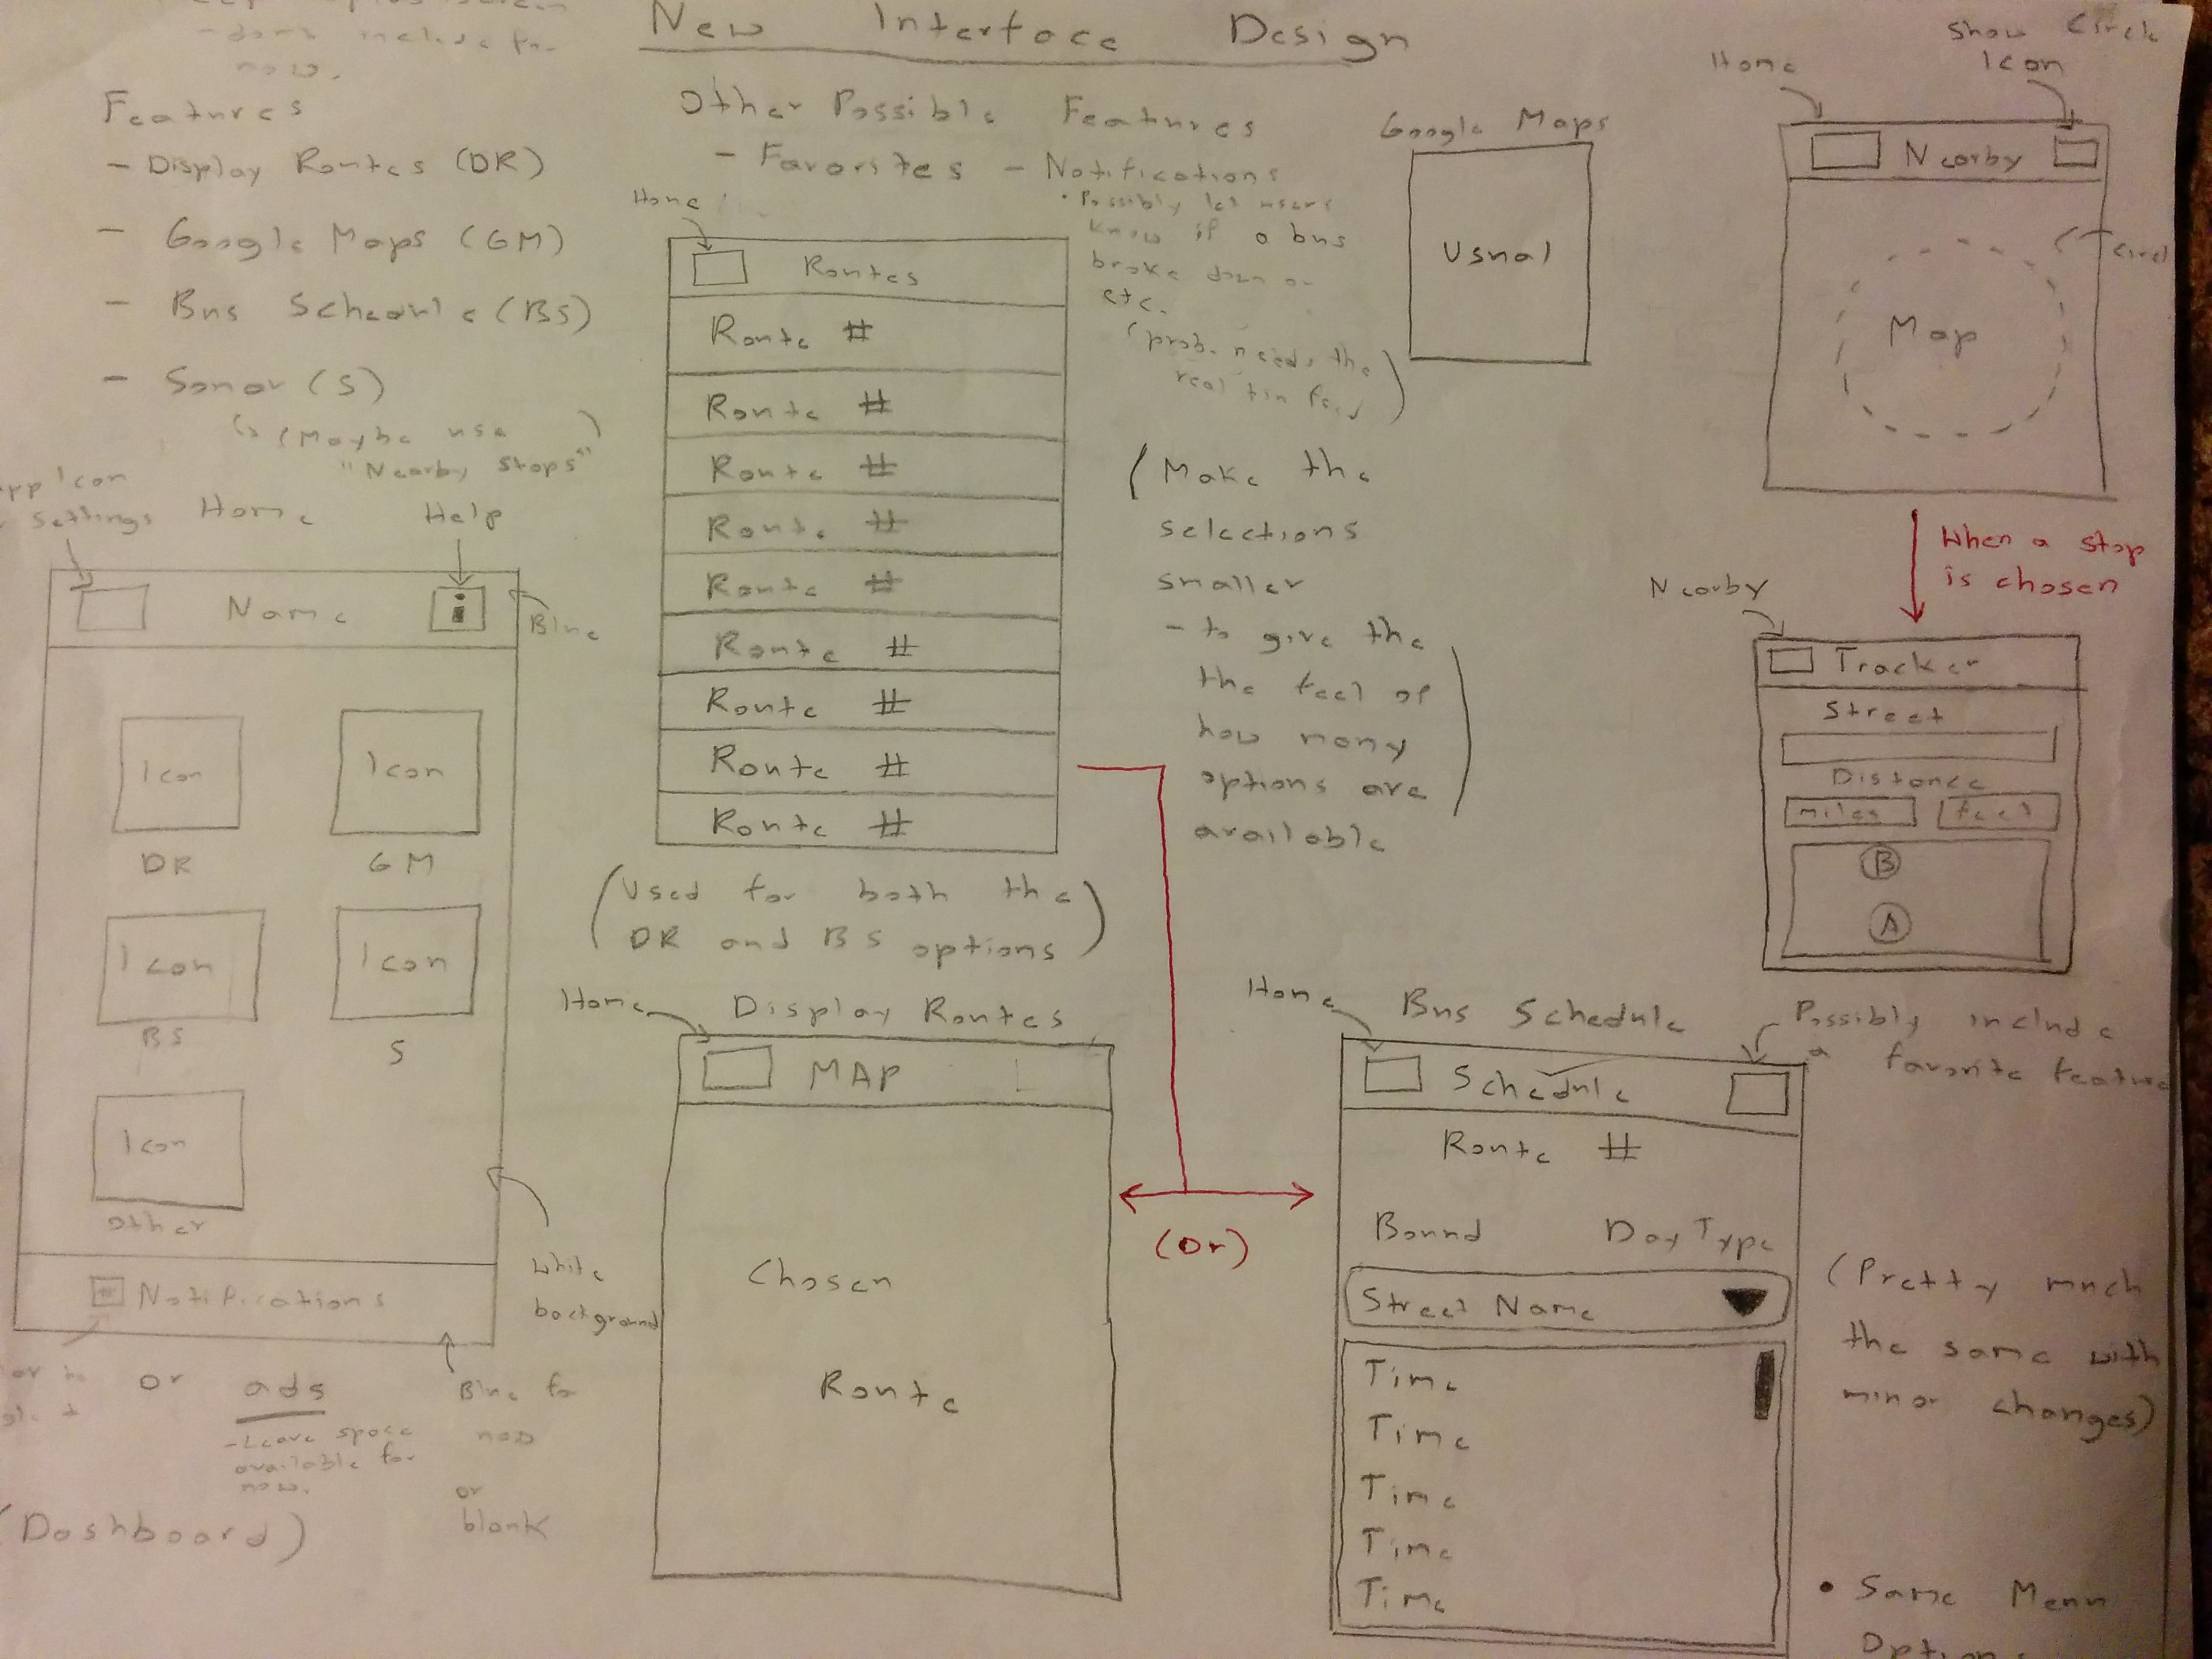 New Interface Design
include for
now.
Features
- Display Routes (DR)
- Google Maps (GM)
- Bus Schedule (BS)
- Sonar (S)
(Maybe use
"Nearby Stops")
App Icon
Settings
Home
Help
Name
i
Blue
Icon
Icon
DR
GM
Icon
Icon
BS
S
Icon
Other
Notifications
White
background
or ads
- Leave space
available for
now.
Blue for
now
or
blank
(Dashboard)
Other Possible Features
- Favorites - Notifications
• Possibly let users
know if a bus
broke down or
etc.
(prob. needs the
real tim feed)
Home
Routes
Route #
Route #
Route #
Route #
Route #
Route #
Route #
Route #
Route #
(Used for both the
DR and BS options)
(Make the
selections
smaller
- to give the
the feel of
how many
options are
available)
Home
Display Routes
MAP
Chosen
Route
(Or)
Google Maps
Usual
Home
Show Circle
Icon
Nearby
Circl
Map
When a stop
is chosen
Nearby
Tracker
Street
Distance
miles
feet
B
A
Home
Bus Schedule
Possibly include
a favorite feature
Schedule
Route #
Bound
Day Type
Street Name
Time
Time
Time
Time
Time
(Pretty much
the same with
minor changes)
• Same Menu